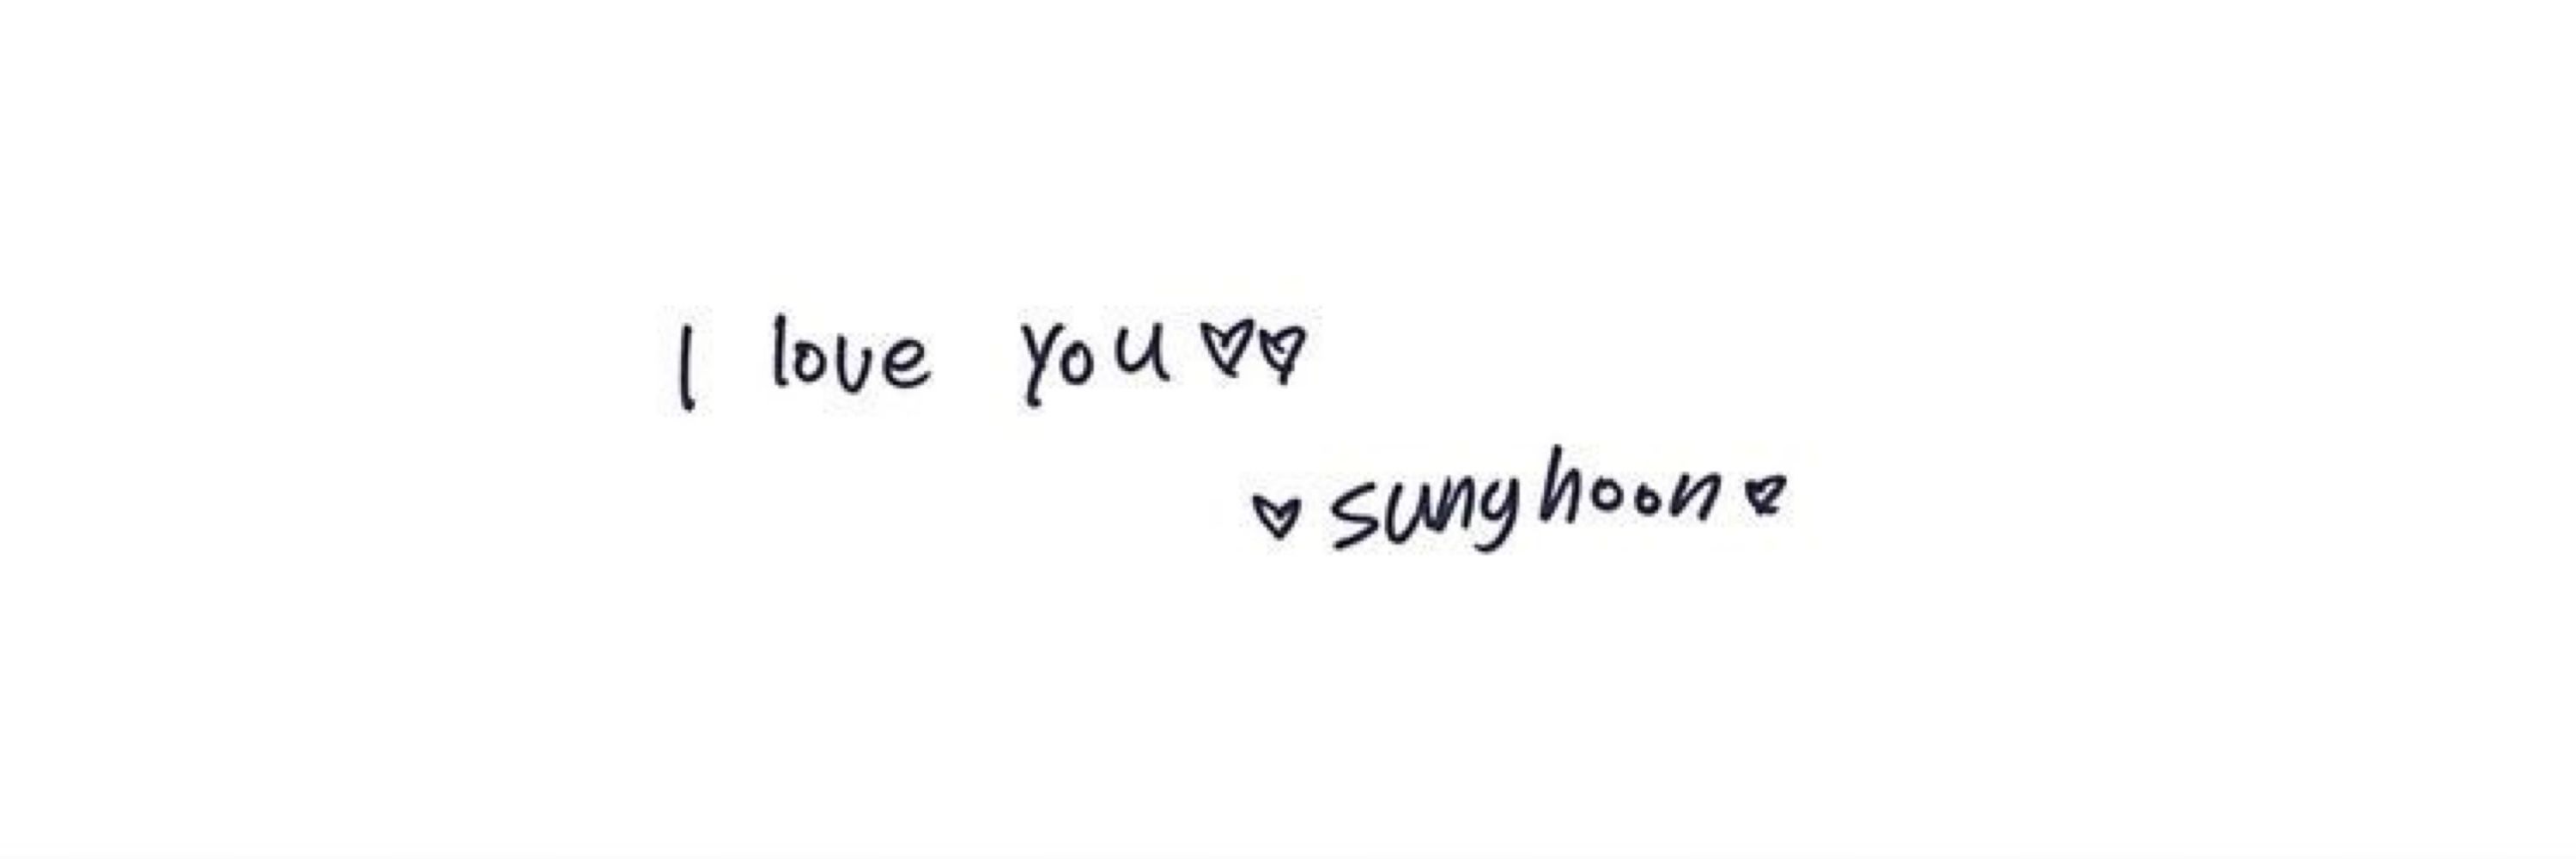 I love you ♡♡
♡ sunghoon ♡